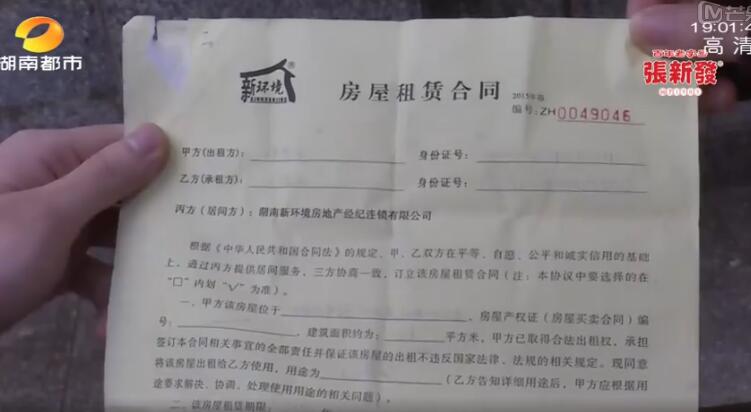 湖南都市
19:01:4
高清
百年老字号
張新發
新环境
房屋租赁合同
2015年版
编号:ZH0049046
甲方(出租方):
身份证号:
乙方(承租方):
身份证号:
丙方(居间方):湖南新环境房地产经纪连锁有限公司
根据《中华人民共和国合同法》的规定、甲、乙双方在平等、自愿、公平和诚实信用的基础
上,通过丙方提供居间服务,三方协商一致,订立该房屋租赁合同(注:本协议中要选择的在
“□”内划“√”为准)。
一、甲方该房屋位于
,房屋产权证(房屋买卖合同)编
号:
,建筑面积约为:
平方米,甲方已取得合法出租权,承担
签订本合同相关事宜的全部责任并保证该房屋的出租不违反国家法律、法规的相关规定。现同意
将该房屋出租给乙方使用,用途为
(乙方告知详细用途后,甲方应根据用
途要求解决、协调、处理使用用途的相关问题)。
二、该房屋租赁期限